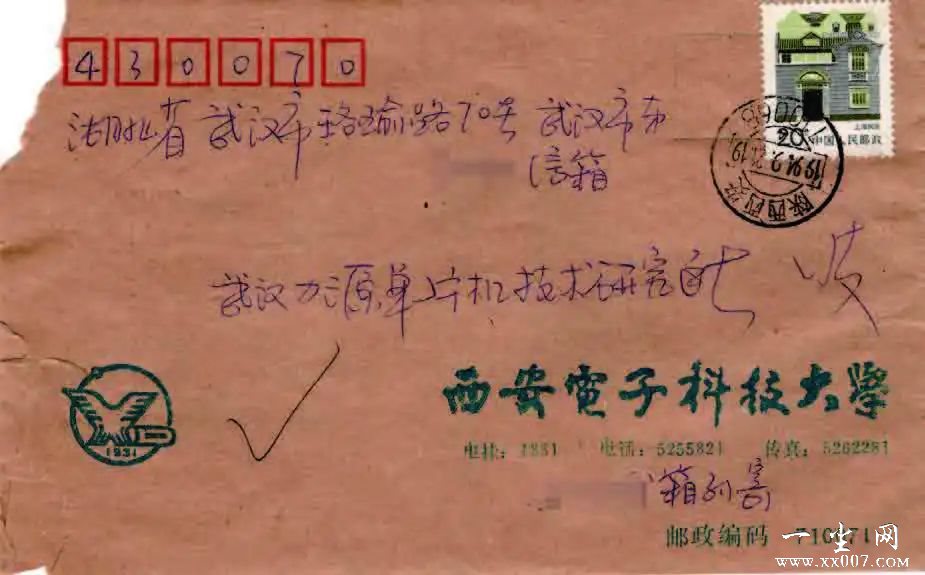 430070
湖北省武汉市珞瑜路70号 武汉市
信箱
武汉力源单片机技术研究 收
上海民居
20
中国人民邮政
陕西西安
1931
西安電子科技大學
电挂：1331 电话：5255821 传真：5262281
箱 寄
邮政编码 71
一生网
www.xx007.com